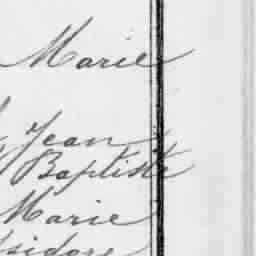 Marie
Jean
Baptiste
Marie
Isidore